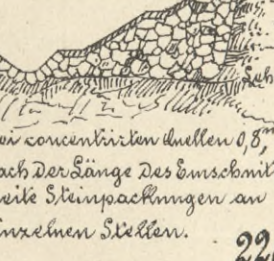 Leh
ei concentrirten Quellen 0,8m
ach der Länge des Einschnit
eite Steinpackungen an
inzelnen Stellen.
22